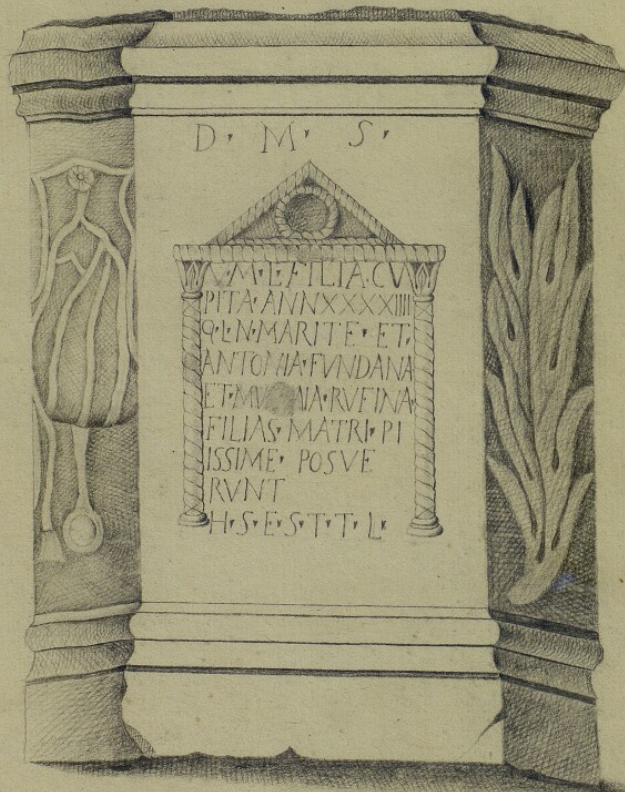 D · M · S ·
· M · L · FILIA · CV
PITA · ANNXXXXIIII
MARITE · ET ·
ANTONIA · FVNDANA
ET · RVFINA
FILIAS · MATRI · PI
ISSIME · POSVE
RVNT
H · S · E · S · T · T · L ·